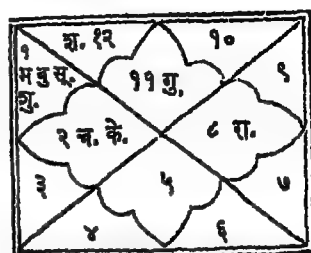 श. १२
१०
१
मं बु सू.
शु.
११ गु.
९
२ च. के.
८ रा.
३
५
७
४
६